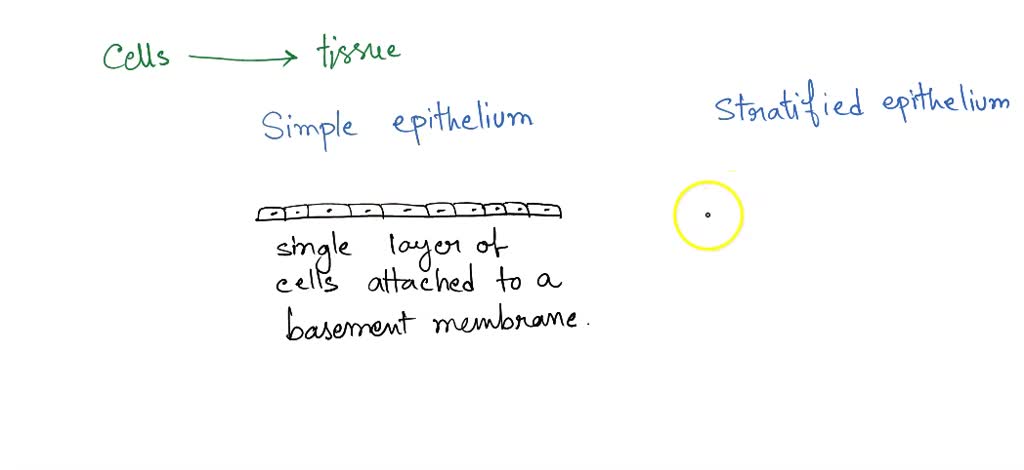 Cells → tissue
Simple epithelium
Stratified epithelium
single layer of
cells attached to a
basement membrane.